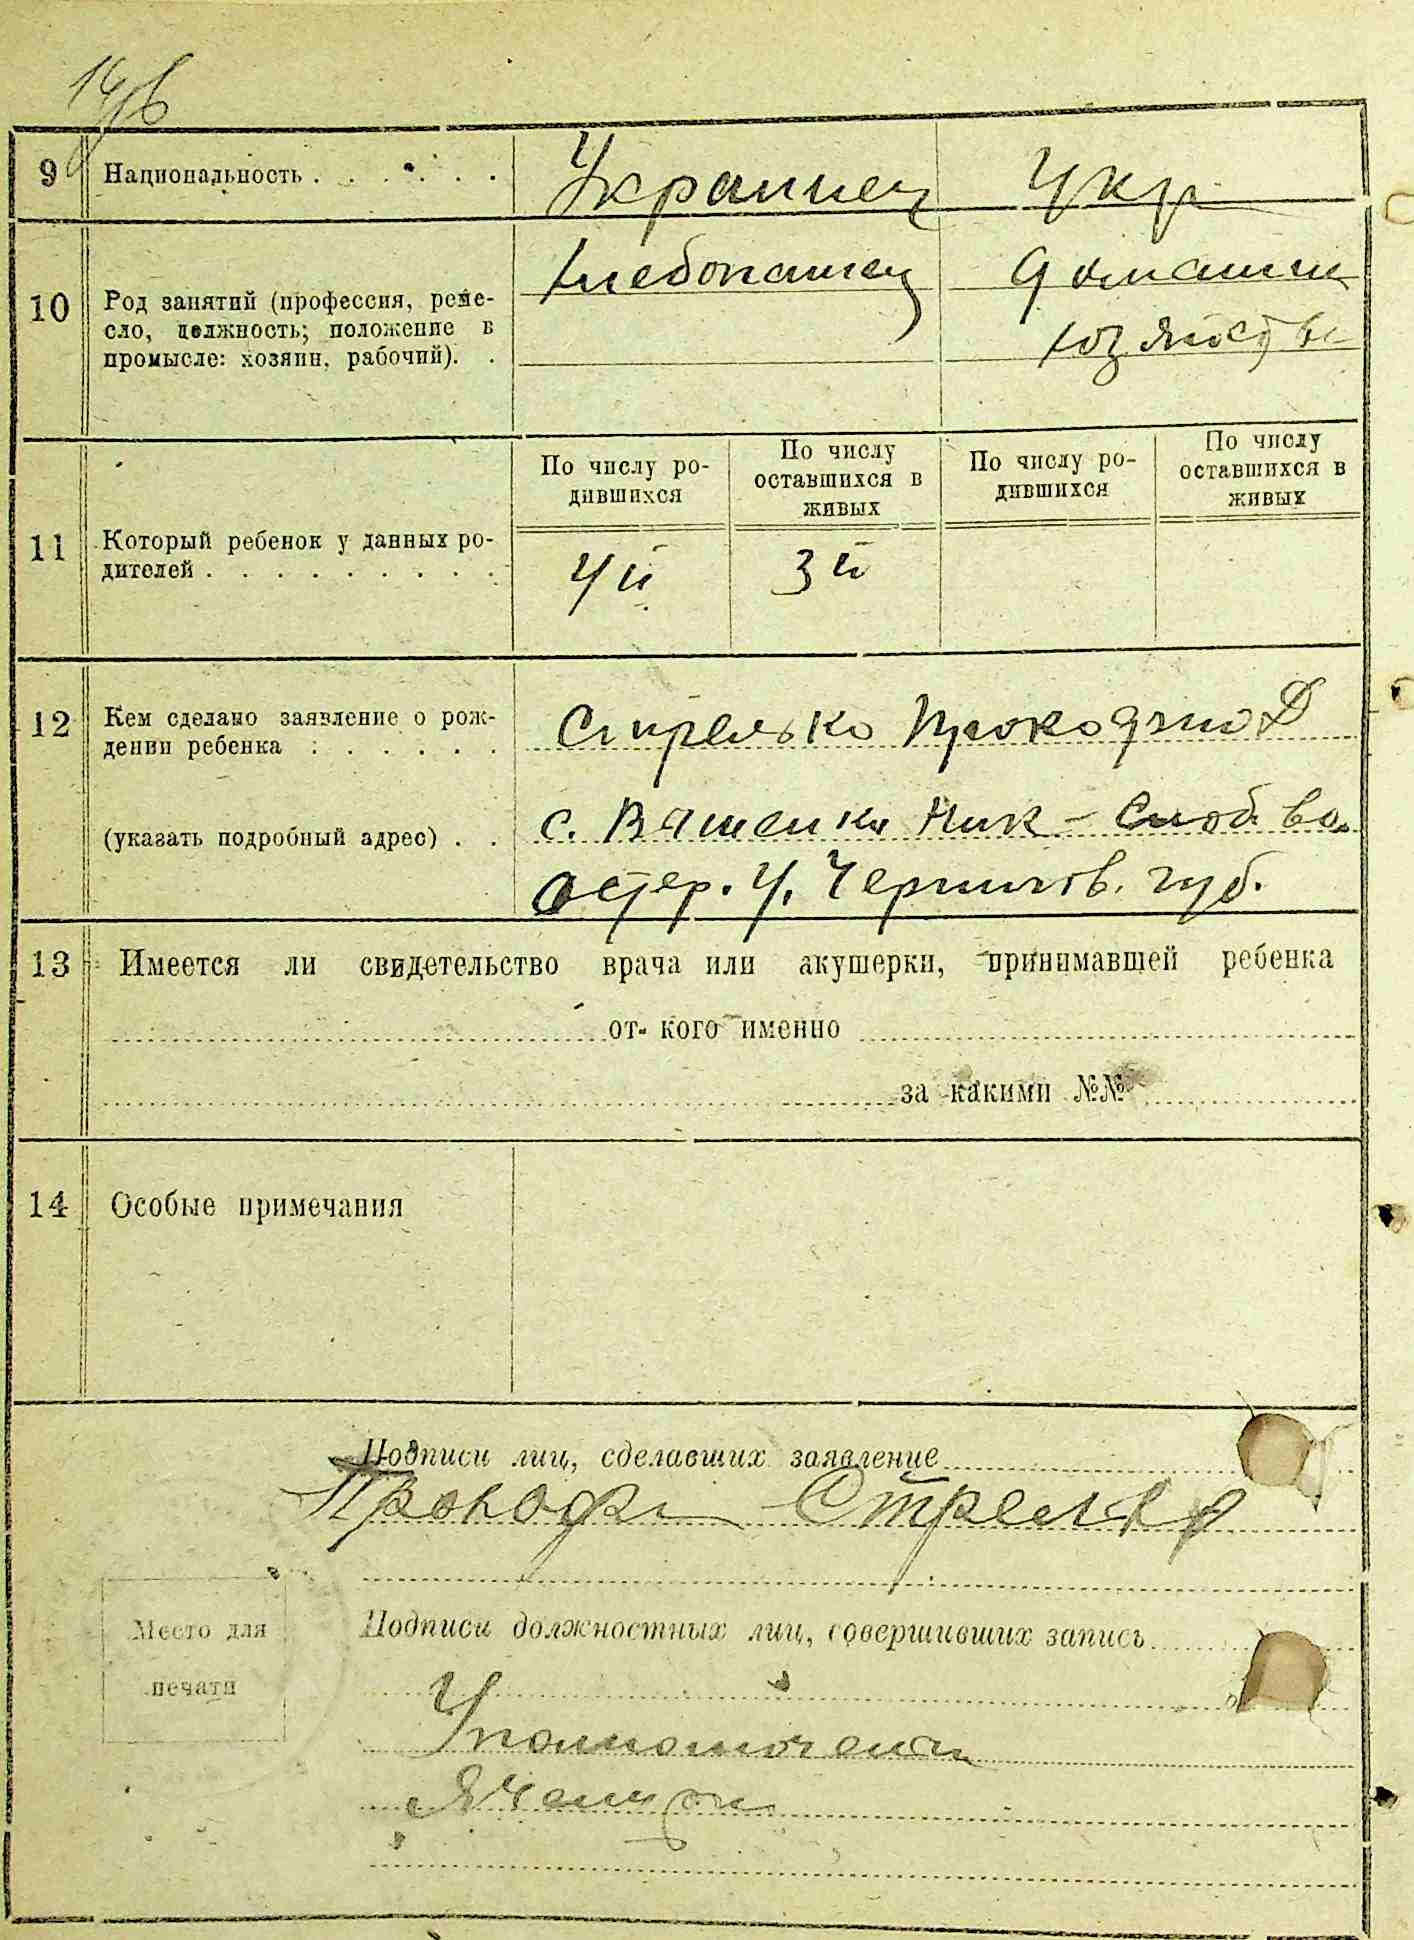 9 Национальность . . . . . . Украинец Укр
10 Род занятий (профессия, реме-
сло, должность; положение в
промысле: хозяин, рабочий). .
Хлебопашец
Домашн
хозяйство
По числу ро-
дившихся
По числу
оставшихся в
живых
По числу ро-
дившихся
По числу
оставшихся в
живых
11 Который ребенок у данных ро-
дителей . . . . . . . . . .
4й 3й
12 Кем сделано заявление о рож-
дении ребенка : . . . . .
(указать подробный адрес) . .
Стрелько Прокофию Д
с. Вяшеньки Ник-Слоб. во.
Остер. у. Чернигов. губ.
13 Имеется ли свидетельство врача или акушерки, принимавшей ребенка
от кого именно
за какими №№
14 Особые примечания
Подписи лиц, сделавших заявление
Прокофи Стрелько
Место для
печати
Подписи должностных лиц, совершивших запись
Уполномочен